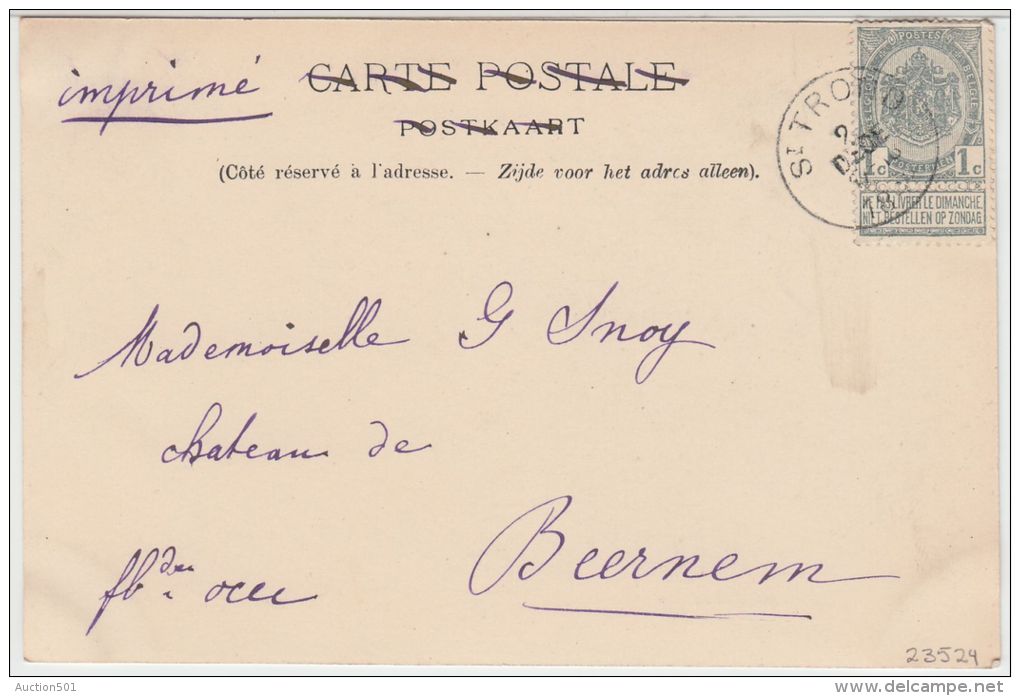 imprimé
CARTE POSTALE
POSTKAART
(Côté réservé à l'adresse. — Zijde voor het adres alleen).
POSTES
BELGIE
POSTERIJEN
1c 1c
NE PAS LIVRER LE DIMANCHE
NIET BESTELLEN OP ZONDAG
ST TROND
Mademoiselle G Snoy
chateau de
Beernem
occ
23524
Auction501
delcampe.net